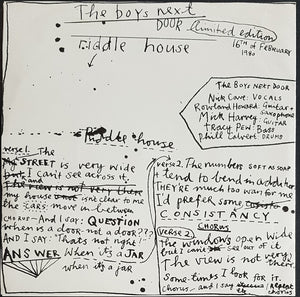 The boys next
DOOR limited edition
16TH of FEBRUARY
1980
riddle house
The Boys Next Door
Nick Cave: VOCALS
Rowland Howard: Guitar +
Saxophone
Mick Harvey: GUITAR
Tracy Pew: BASS
Phill Calvert: DRUMS
Riddle house
verse 1. The
STREET is very wide
but I can't see across it.
and
The view is not very there
my house is not clear to me
the cars move in-between
CHORUS - And I say: QUESTION
when is a door not a door???
And I say: "That's not right!"
ANSWER When it's a JAR
when it's a jar
verse 2. The number SOFT AS SOAP
I tend to bend in a ladder
THEY'RE much too wan for me
I'd prefer some
CONSISTANCY
CHORUS
verse 2
the windows open wide
but I can't see out of it
The view is not very there
Sometimes I look for it.
Chorus. and I say repeat
chorus